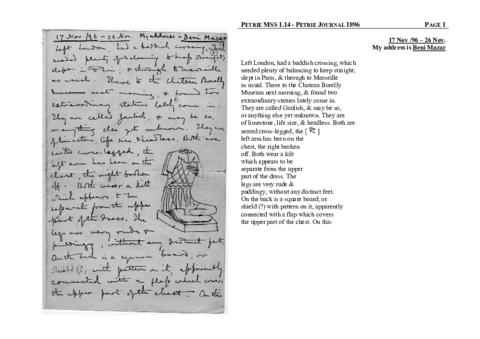 17 Nov /96 – 26 Nov. My address is Beni Mazar
Left London, had a baddish crossing, which
needed plenty of balancing to keep straight;
slept in Paris, & through to Marseille
as usual. There to the Chateau Borelly
Museum next morning, & found two
extraordinary statues lately come in.
They are called Gaulish, & may be so,
or anything else yet unknown. They are
of limestone, life size & headless. Both are
seated cross-legged, the
left arm has been on the
chest, the right broken
off. Both wear a kilt
which appears to be
separate from the upper
part of the dress. The
legs are very rude &
puddingy, without any distinct feet.
On the back is a square board, or
shield (?) with pattern on it, apparently
connected with a flap which covers
the upper part of the chest. On this
PETRIE MSS 1.14 - PETRIE JOURNAL 1896 PAGE 1
17 Nov /96 – 26 Nov.
My address is Beni Mazar
Left London, had a baddish crossing, which
needed plenty of balancing to keep straight;
slept in Paris, & through to Marseille
as usual. There to the Chateau Borelly
Museum next morning, & found two
extraordinary statues lately come in.
They are called Gaulish, & may be so,
or anything else yet unknown. They are
of limestone, life size, & headless. Both are
seated cross-legged, the [ ]
left arm has been on the
chest, the right broken
off. Both wear a kilt
which appears to be
separate from the upper
part of the dress. The
legs are very rude &
puddingy, without any distinct feet.
On the back is a square board, or
shield (?) with pattern on it, apparently
connected with a flap which covers
the upper part of the chest. On this